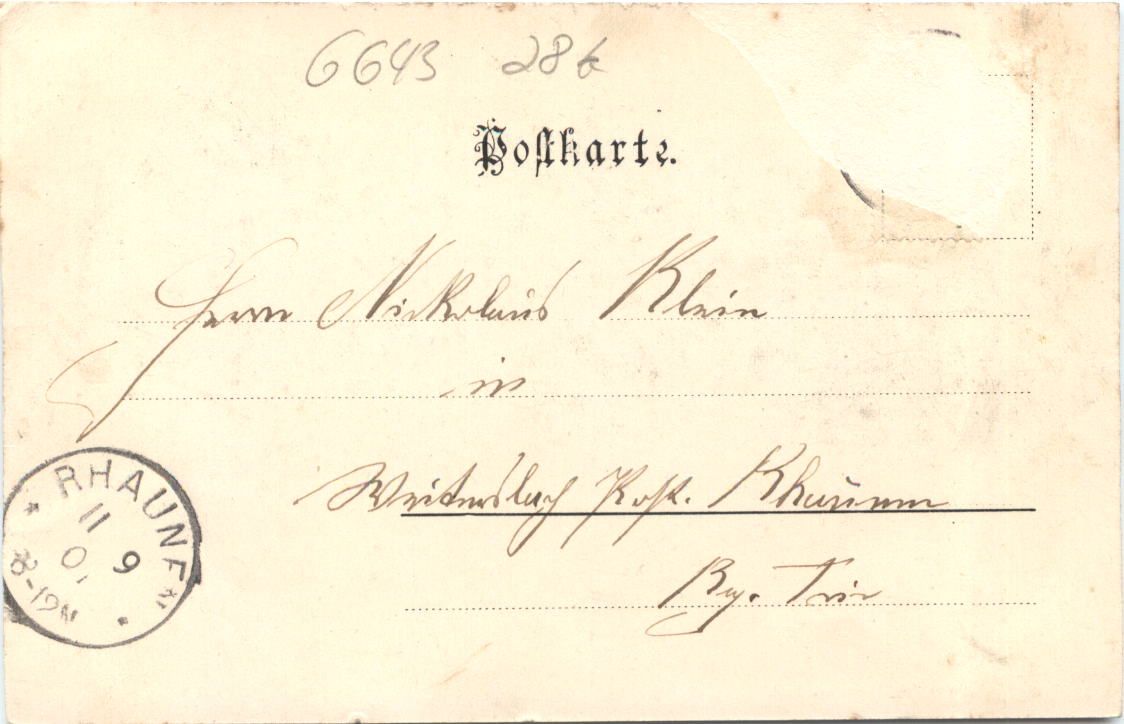 6643 286
Postkarte.
Herrn Nickolaus Klein
in
Weitersbach Post. Rhaunen
Bz. Trier
RHAUNE
11 9
01
8-12N